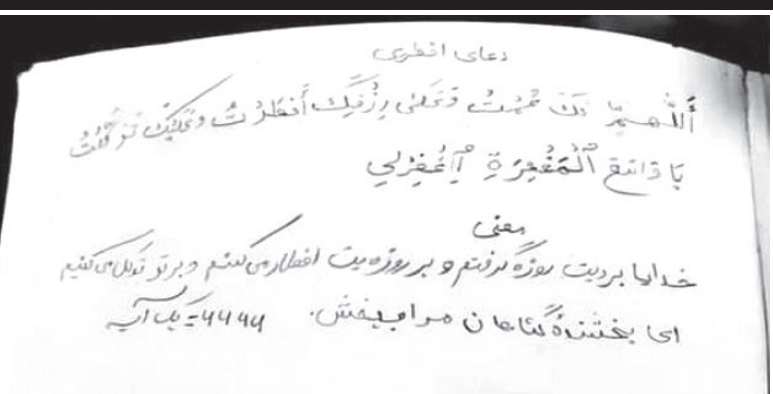 دعای افطری
أَللّهُمَّ لَكَ صُمْتُ وَعَلى رِزْقِكَ أَفْطَرْتُ وَعَلَيْكَ تَوَكَّلْتُ
يَا وَاسِعَ الْمَغْفِرَةِ اِغْفِرْلِي
معنی
خدایا برایت روزه گرفتم و بر روزه‌یت افطار می‌کنم و بر تو توکل می‌کنیم
ای بخشندهٔ گناهان مرا ببخش.